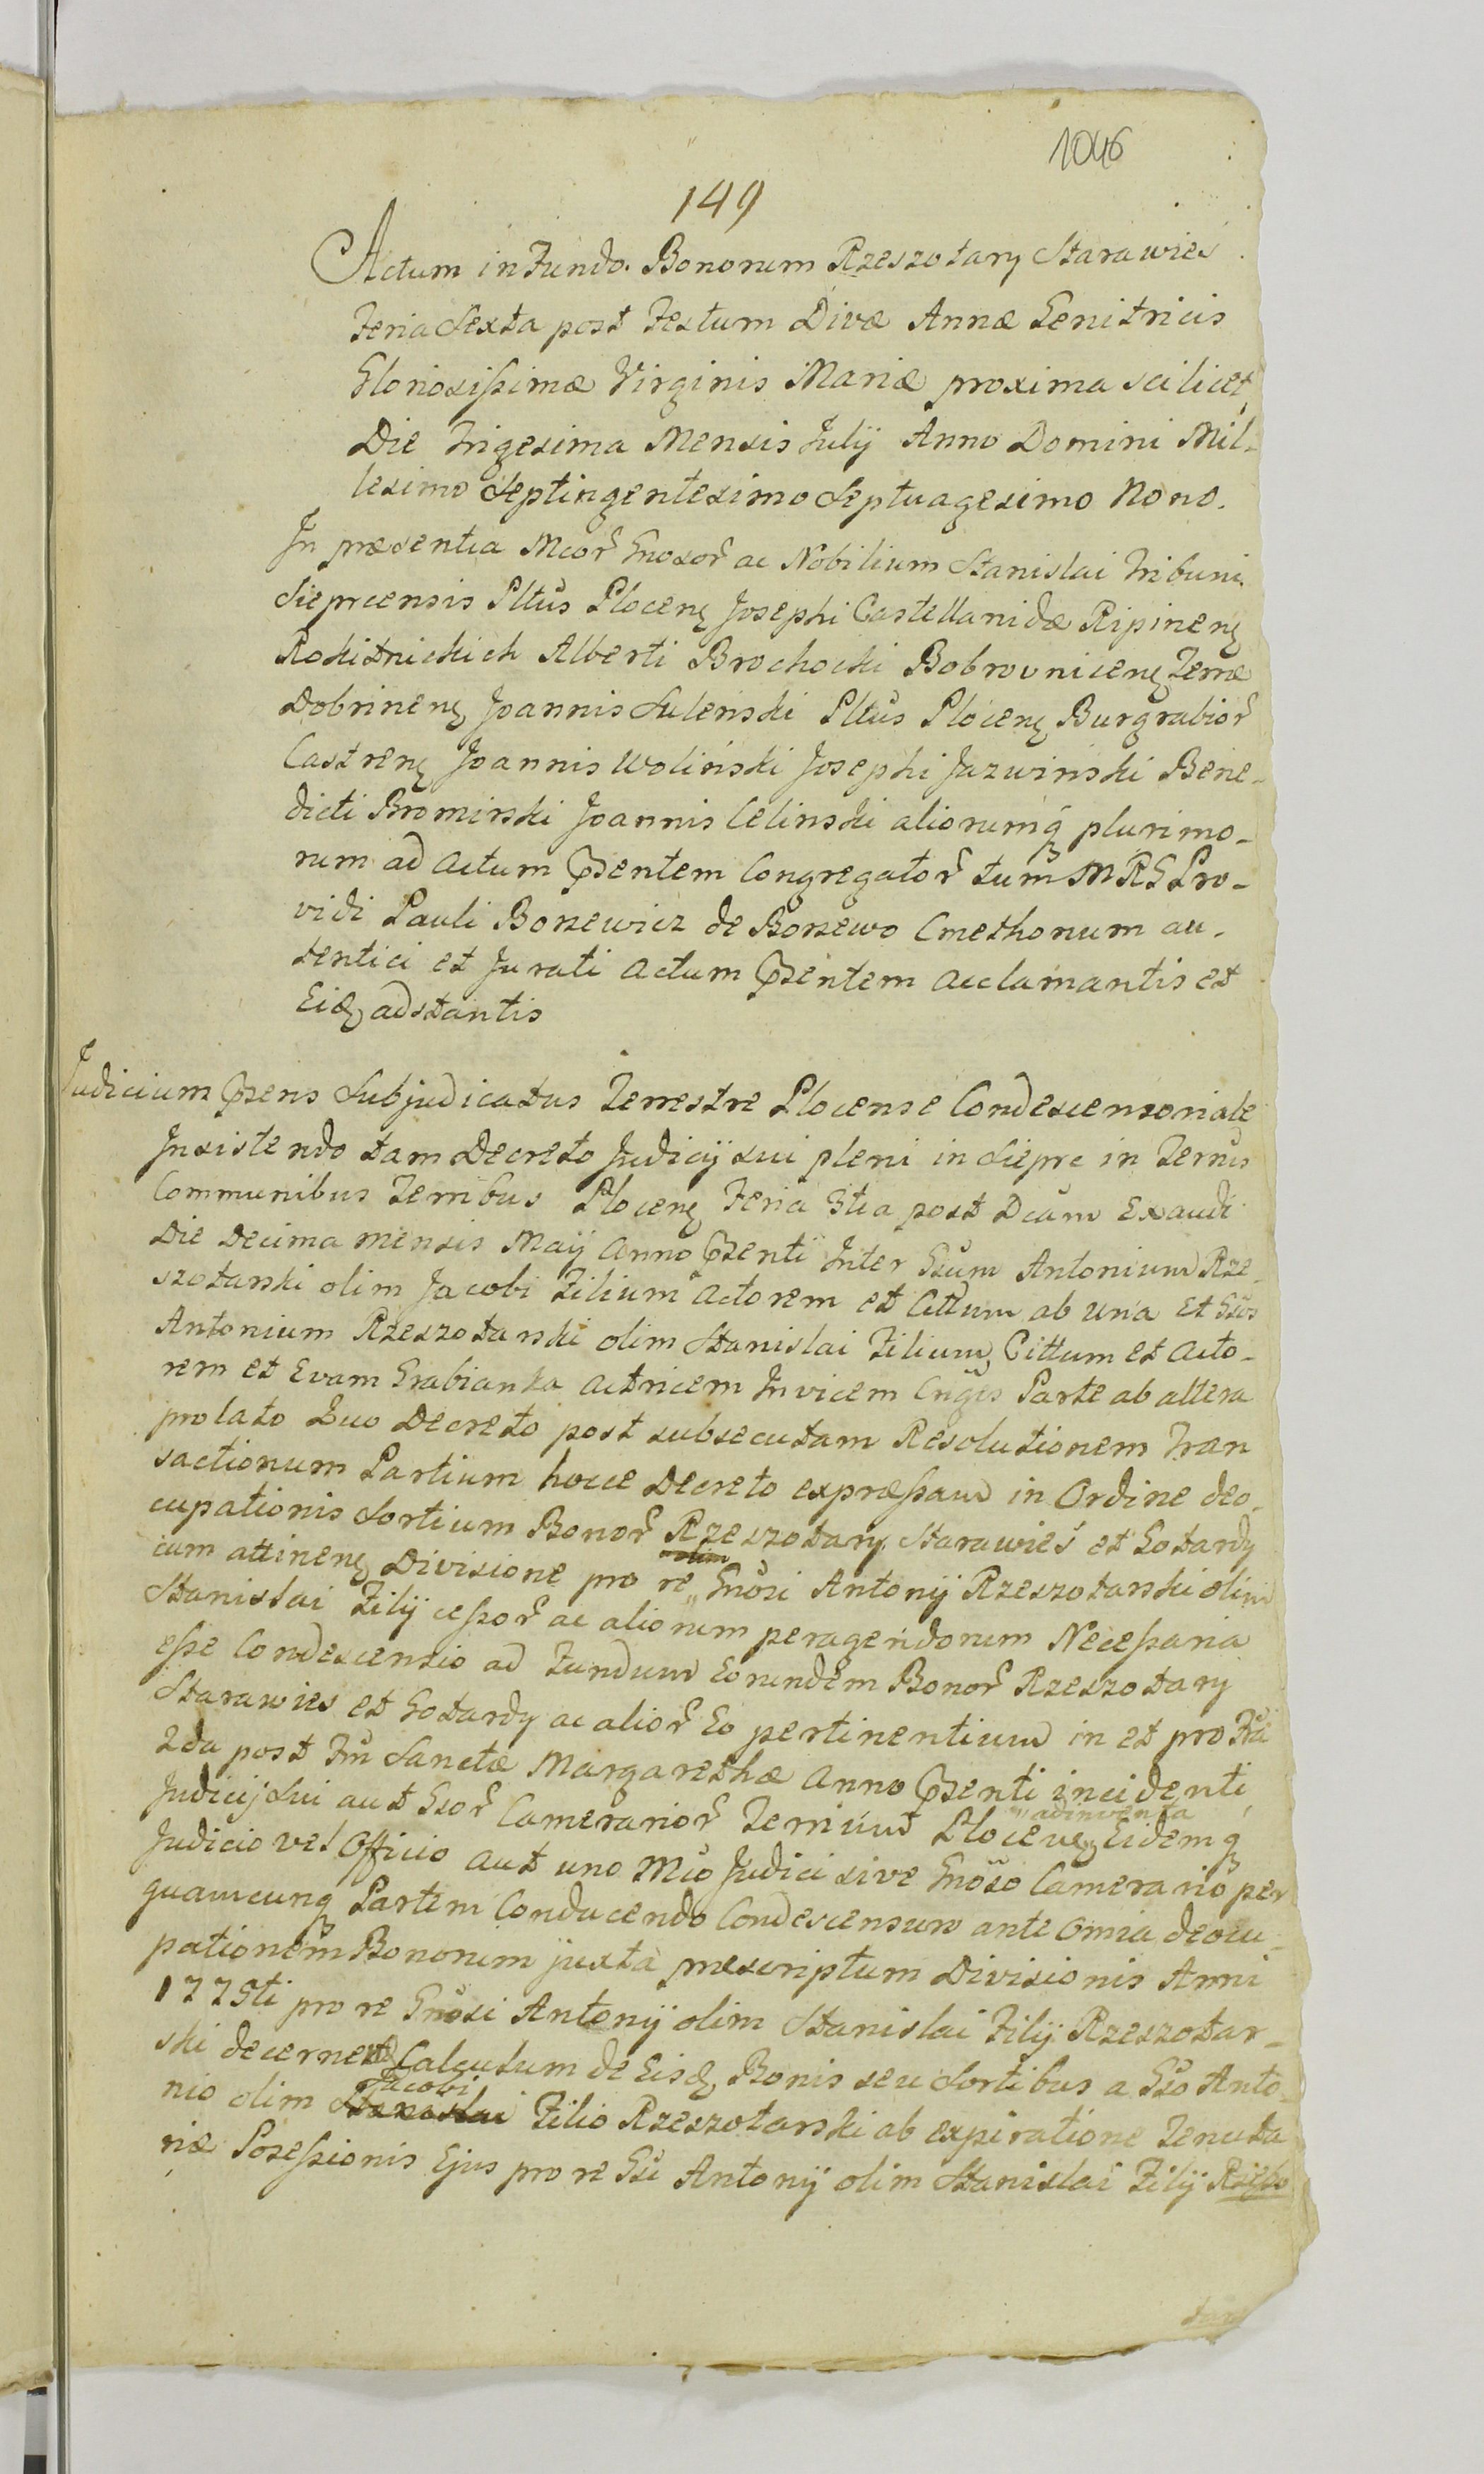 1046
149
Actum in Fundo. Bonorum Rzeszotary Starawieś
Feria Sexta post Festum Divæ Annæ Genitricis
Gloriosissimæ Virginis Mariæ proxima scilicet
Die Trigesima Mensis Julij Anno Domini Mil-
lesimo Septingentesimo Septuagesimo Nono.
In præsentia Mcor Gnosor ac Nobilium Stanislai Tribuni
Sieprcensis Pltus Plocens Josephi Castellanidæ Ripinens
Rokitnickich Alberti Brochocki Bobrovnicens Terræ
Dobrinens Joannis Suleński Pltus Plocens Burgrabior
Castrens Joannis Woliński Josephi Jazwiński Bene-
dicti Bromirski Joannis Celinski aliorumq plurimo-
rum ad Actum Pzentem Congregator tum M R G Pro-
vidi Pauli Bonewicz de Bonzewo Cmethonum au-
tentici et Jurati Actum Pzentem acclamantis et
Eid adstantis
Judicium Pzens Subjudicatus Terrestre Plocense Condescensoriale
Insistendo tam Decreto Judicij sui pleni in Sieprc in Ternis
Communibus Terribus Plocens Feria 3tia post Dcam Exaudi
Die Decima mensis Maij Anno Pzenti Inter Gsum Antonium Rze-
szotarski olim Jacobi Filium Actorem et Cittum ab una et Gsos
Antonium Rzeszotarski olim Stanislai Filium Cittum et Acto-
rem et Evam Grabianka Actricem Invicem Cnges Parte ab altera
prolato Quo Decreto post subsecutam Resolutionem Tran
sactionum Partium hocce Decreto expressam in Ordine deo-
cupationis Sortium Bonor Rzeszotary Starawieś et Gotardy
cum attinens Divisione pro re olim Gnosi Antonij Rzeszotarski olim
Stanislai Filij cessor ac aliorum peragendorum Necessaria
esse Condescensio ad Fundum Eorundem Bonor Rzeszotary
Starawies et Gotardy ac alior Eo pertinentium in et pro Fria
2da post Fm Sanctæ Margarethæ Anno Pzenti incidenti
Judicij Sui aut Gsor Camerarior Terrium Plocens adinventa Eidemq
Judicio vel Officio aut uno Mco Judici sive Gnoso Camerario per
quamcunq Partem Conducendo Condescensum ante Omnia deocu-
pationem Bonorum juxta præscriptum Divisionis Anni
1775ti pro re Gnosi Antonij olim Stanislai Filij Rzeszotar-
ski decernend Calculum de Eisd Bonis seu Sortibus a Gso Anto-
nio olim Stanislai Jacobi Filio Rzeszotarski ab expiratione Tenuta
riæ Posessionis Ejus pro re Gsi Antonij olim Stanislai Filij